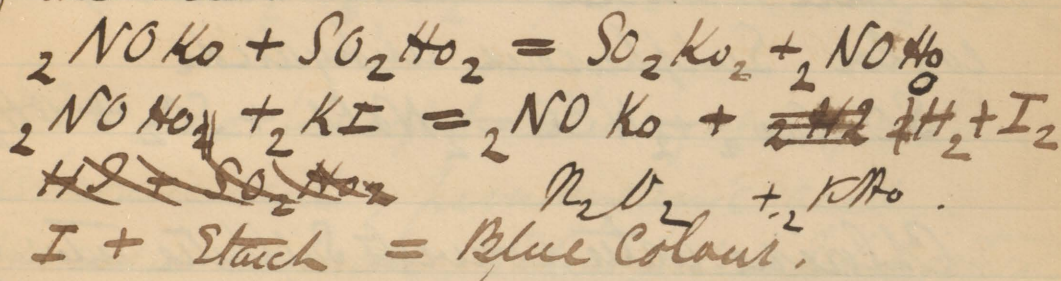 ₂NOKo + SO₂Ho₂ = SO₂Ko₂ + ₂NOHo
₂NOHo + ₂KI = ₂NOKo + H₂ + I₂
N₂O₂ + ₂KHo.
I + Starch = Blue Colour.